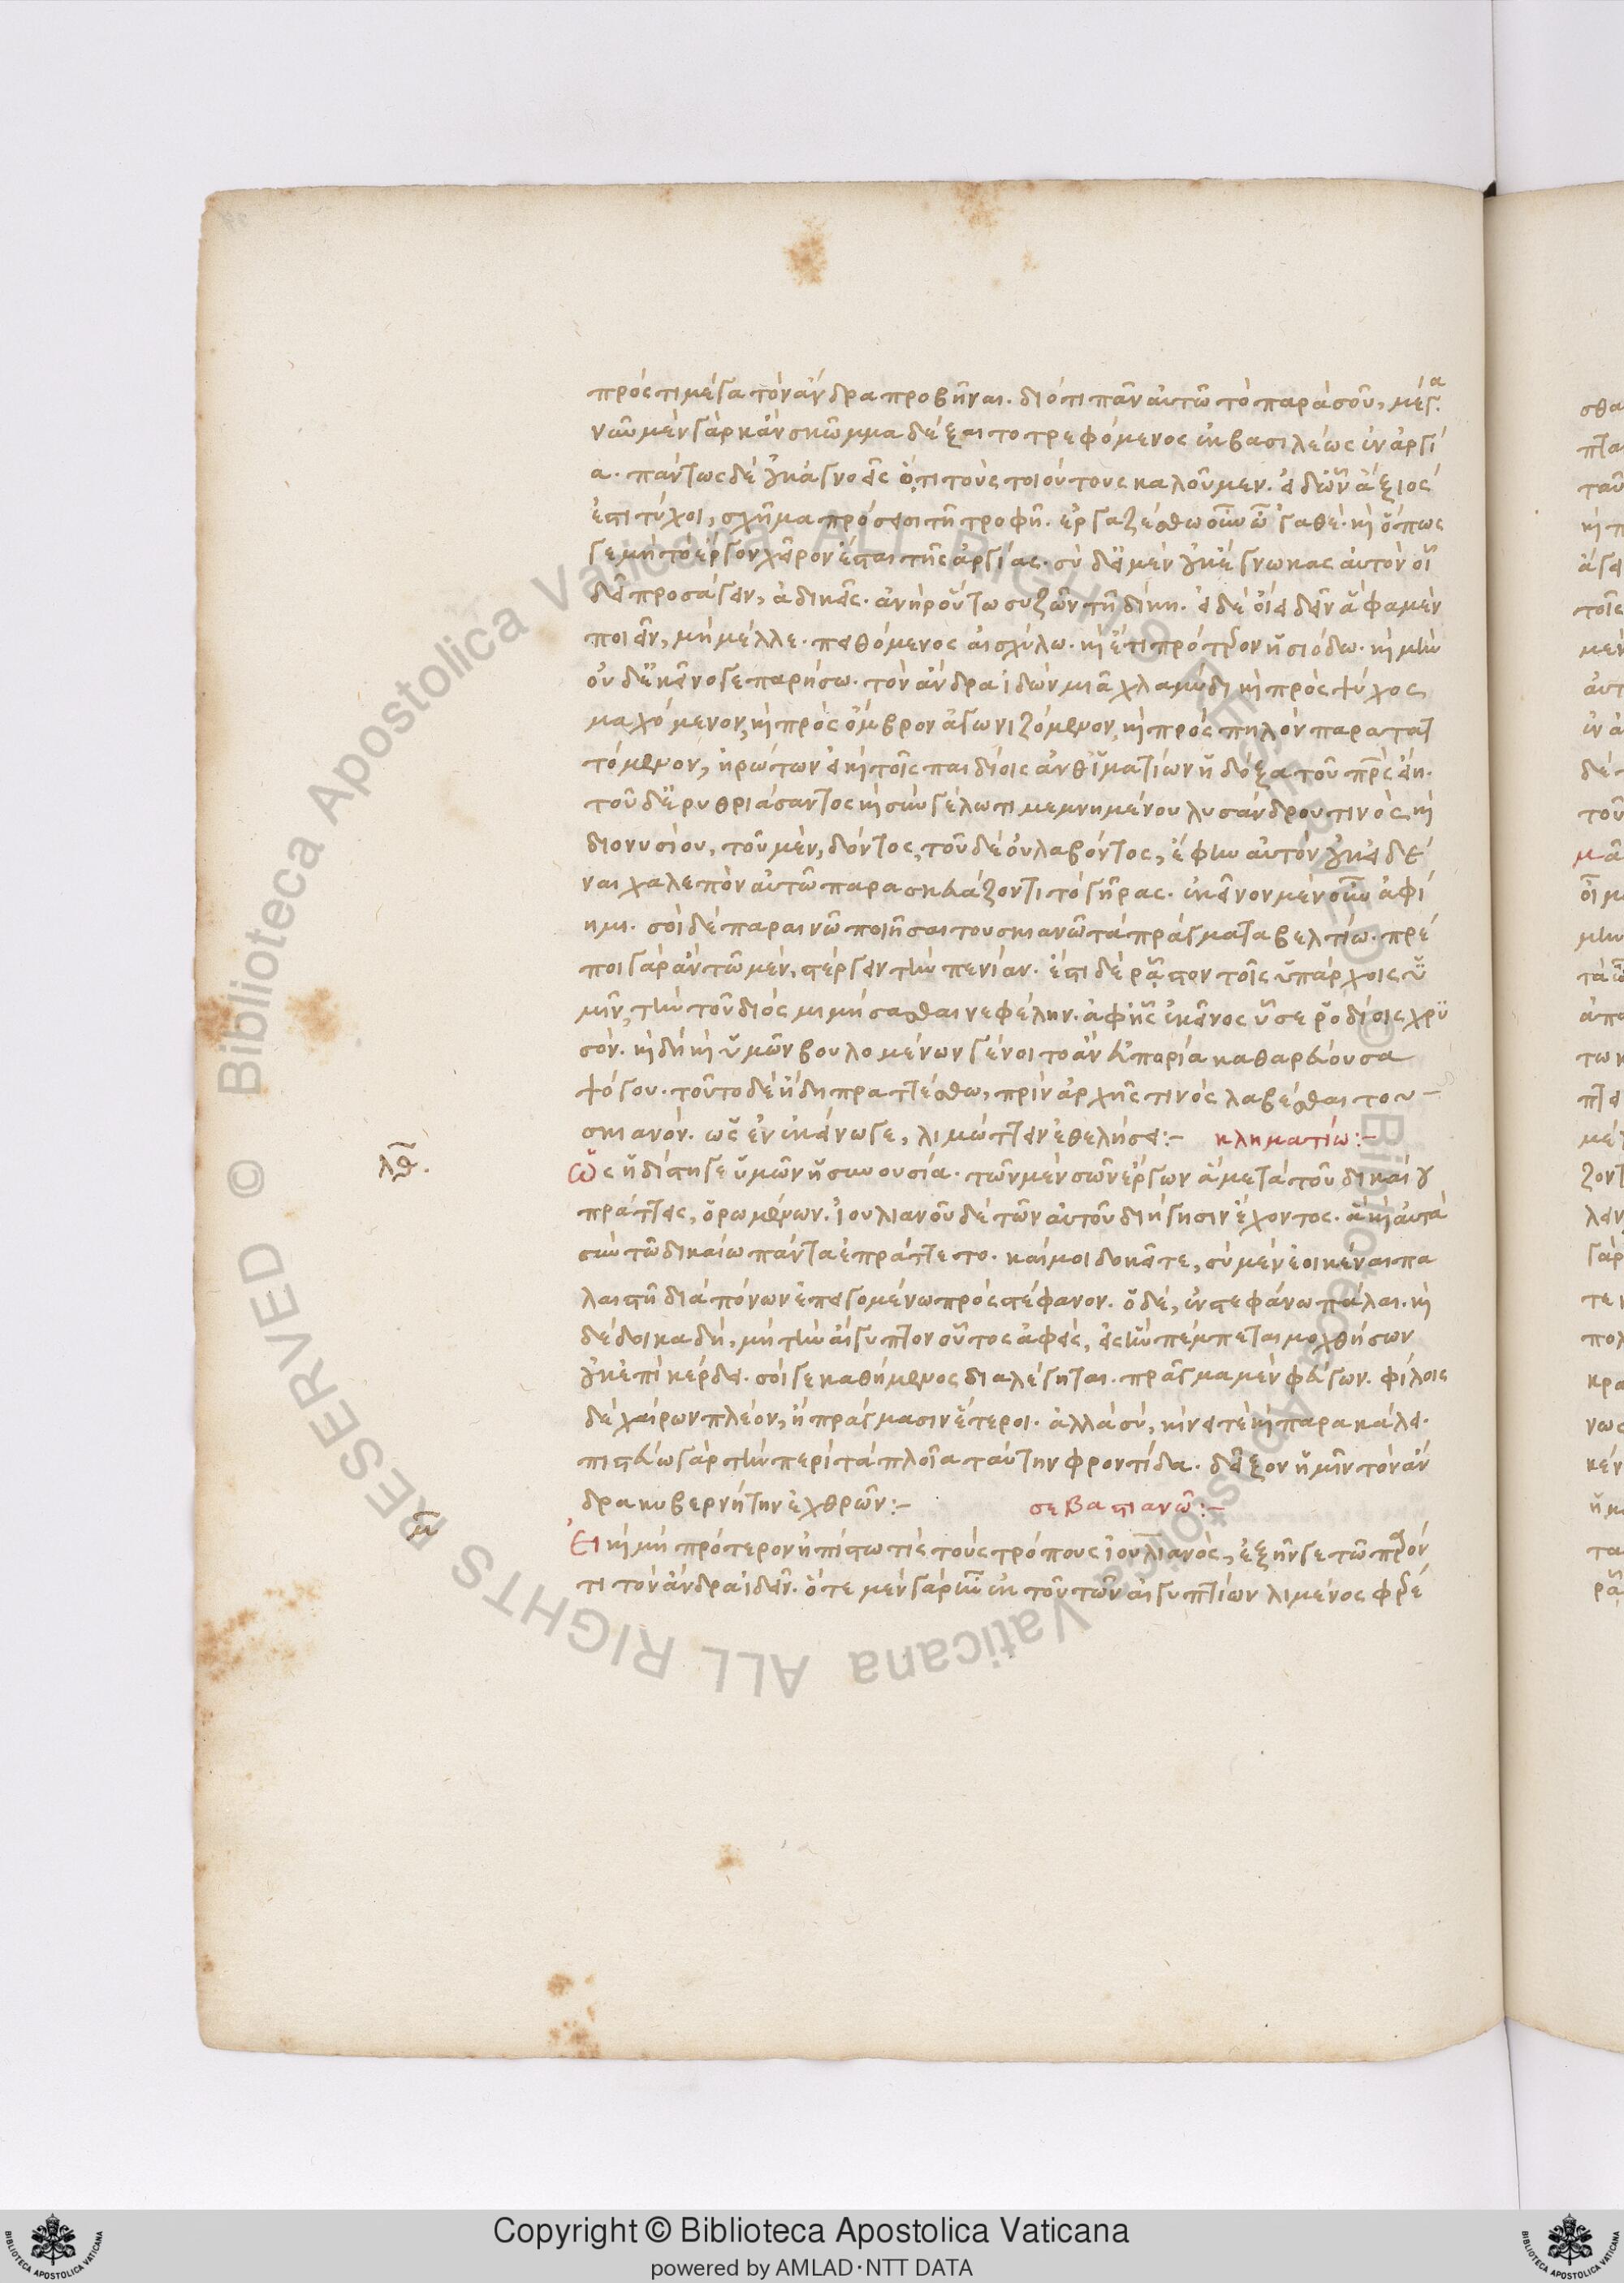 πρός τι μέγα τὸν ἄνδρα προβῆναι. διότι πᾶν αὐτῶ τὸ παρὰ σοῦ, μέγα.
νῦν μὲν γὰρ κἂν σκῶμμα δέξαιτο τρεφόμενος ἐκ βασιλέως ἐν ἀργί
α. πάντως δὲ οὐκ ἀγνοεῖς ὅ,τι τοὺς τοιούτους καλοῦμεν. εἰ δ' ὧν ἄξιός
ἐστι τύχοι, σχῆμα πρόσεστι τῆ τροφῆ. ἐργαζέσθω οὖν ὦ 'γαθέ. καὶ ὅπως
γε μὴ τὸ ἔργον χεῖρον ἔσται τῆς ἀργίας. σὺ δ' εἰ μὲν οὐκ ἔγνωκας αὐτὸν οἷ
δεῖ προσάγειν, ἀδικεῖς. ἀνὴρ οὕτω συζῶν τῆ δίκη. εἰ δὲ οἶει δεῖν ἅ φαμεν
ποιεῖν, μὴ μέλλε. πειθόμενος αἰσχύλω. καὶ ἔτι πρότερον ἡσιόδω. καὶ μὴν
οὐδ' ἐκεῖνό γε παρήσω. τὸν ἄνδρα ἰδὼν μιᾶ χλαμύδι καὶ πρὸς ψύχος
μαχόμενον, καὶ πρὸς ὄμβρον ἀγωνιζόμενον, καὶ πρὸς πηλὸν παρατατ
τόμενον, ἠρώτων εἰ καὶ τοῖς παιδίοις ἀνθ' ἱματίων ἡ δόξα τοῦ πατρὸς εἴη.
τοῦ δ' ἐρυθριάσαντος καὶ σὺν γέλωτι μεμνημένου λυσάνδρου τινὸς καὶ
διονυσίου, τοῦ μὲν, δόντος, τοῦ δὲ οὐ λαβόντος, ἔφην αὐτὸν οὐκ εἰδέ
ναι χαλεπὸν αὐτῶ παρασκευάζοντι τὸ γῆρας. ἐκεῖνον μὲν οὖν ἀφί
ημι. σοὶ δὲ παραινῶ ποιῆσαι τουσκιανῶ τὰ πράγματα βελτίω. πρέ
ποι γὰρ ἂν τῶ μὲν, στέργειν τὴν πενίαν. ἔστι δὲ ρᾷστον τοῖς ὑπάρχοις ὑ
μῖν, τὴν τοῦ διὸς μιμήσασθαι νεφέλην. ἀφ' ἧς ἐκεῖνος ὗσε ροδίοις χρυ
σόν. καὶ δὴ καὶ ὑμῶν βουλομένων γένοιτο ἂν εὐπορία καθαρεύουσα
ψόγου. τοῦτο δὲ ἤδη πραττέσθω, πρὶν ἀρχῆς τινὸς λαβέσθαι του
σκιανόν. ὡς ἐν ἐκείνω γε, λιμώττειν ἐθελήσει:– κληματίω:–
λθ.
Ὡς ἡδίστη γε ὑμῶν ἡ συνουσία. τῶν μὲν σῶν ἔργων ἃ μετὰ τοῦ δικαίου
πράττεις, ὁρωμένων. ἰουλιανοῦ δὲ τῶν αὐτοῦ διήγησιν ἔχοντος. ἃ καὶ αὐτὰ
σὺν τῶ δικαίω πάντα ἐπράττετο. καί μοι δοκεῖτε, σὺ μὲν ἐοικέναι πα
λαιστῆ διὰ πόνων ἐπειγομένω πρὸς στέφανον. ὁ δὲ, ἐν στεφάνω πάλαι. καὶ
δέδοικα δὴ, μὴ τὴν αἴγυπτον οὗτος ἀφεὶς, εἰς ἣν πέμπεται μοχθήσων
οὐκ ἐπὶ κέρδει. σοί γε καθήμενος διαλέγηται. πρᾶγμα μὲν φεύγων. φίλοις
δὲ χαίρων πλέον, ἢ πράγμασιν ἕτεροι. ἀλλὰ σὺ, κίνει τε καὶ παρακάλει.
πιστεύω γὰρ τὴν περὶ τὰ πλοῖα ταύτην φροντίδα. δεῖξον ἡμῖν τὸν ἄν
δρα κυβερνήτην ἐχθρῶν:– σεβαστιανῶ:–
μ
Εἰ καὶ μὴ πρότερον ἠπίστω τίς τοὺς τρόπους ἰουλιανὸς, ἐξῆν γε τῶ παρόν
τι τὸν ἄνδρα ἰδεῖν. ὅτε μὲν γὰρ ἦν ἐκ τοῦ τῶν αἰγυπτίων λιμένος φέρε